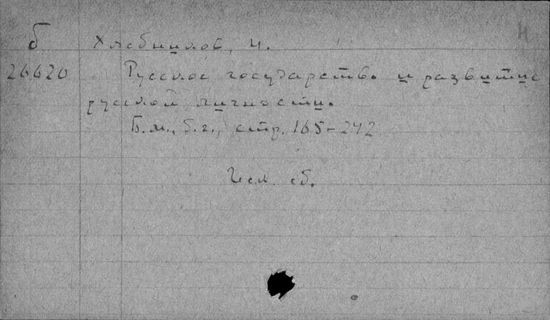 б Хлебников, Н.
26620 Русское государство и развитие
русской личности.
Б.м., б.г., стр. 165-242